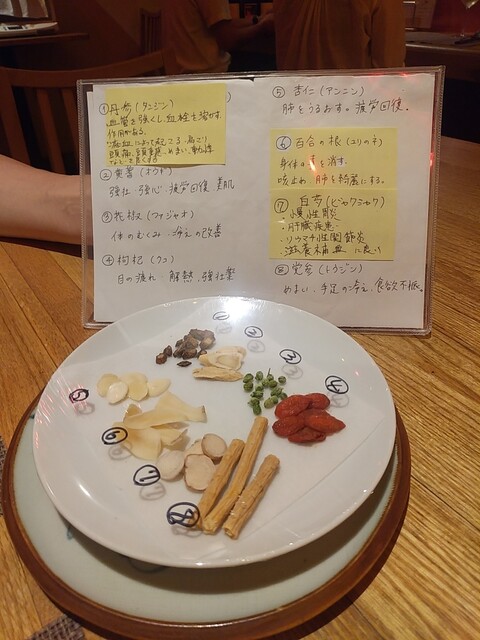 ①丹参(タンジン)
血管を強くし、血栓を溶かす
作用がある。
頭痛、
②黄耆(オウギ)
強壮、強心、疲労回復、美肌
③花椒(ファジャオ)
体のむくみ、冷えの改善
④枸杞(クコ)
目の疲れ、解熱、強壮薬
⑤杏仁(アンニン)
肺をうるおす。疲労回復。
⑥百合の根(ユリのネ)
身体は を消す。
咳止め、肺を綺麗にする。
⑦白芍(ビャクシャク)
・慢性胃炎
・肝臓疾患
・リウマチ性関節炎
・滋養補血に良い
⑧党参(トウジン)
めまい、手足の冷え、食欲不振。
①
②
③
④
⑤
⑥
⑦
⑧